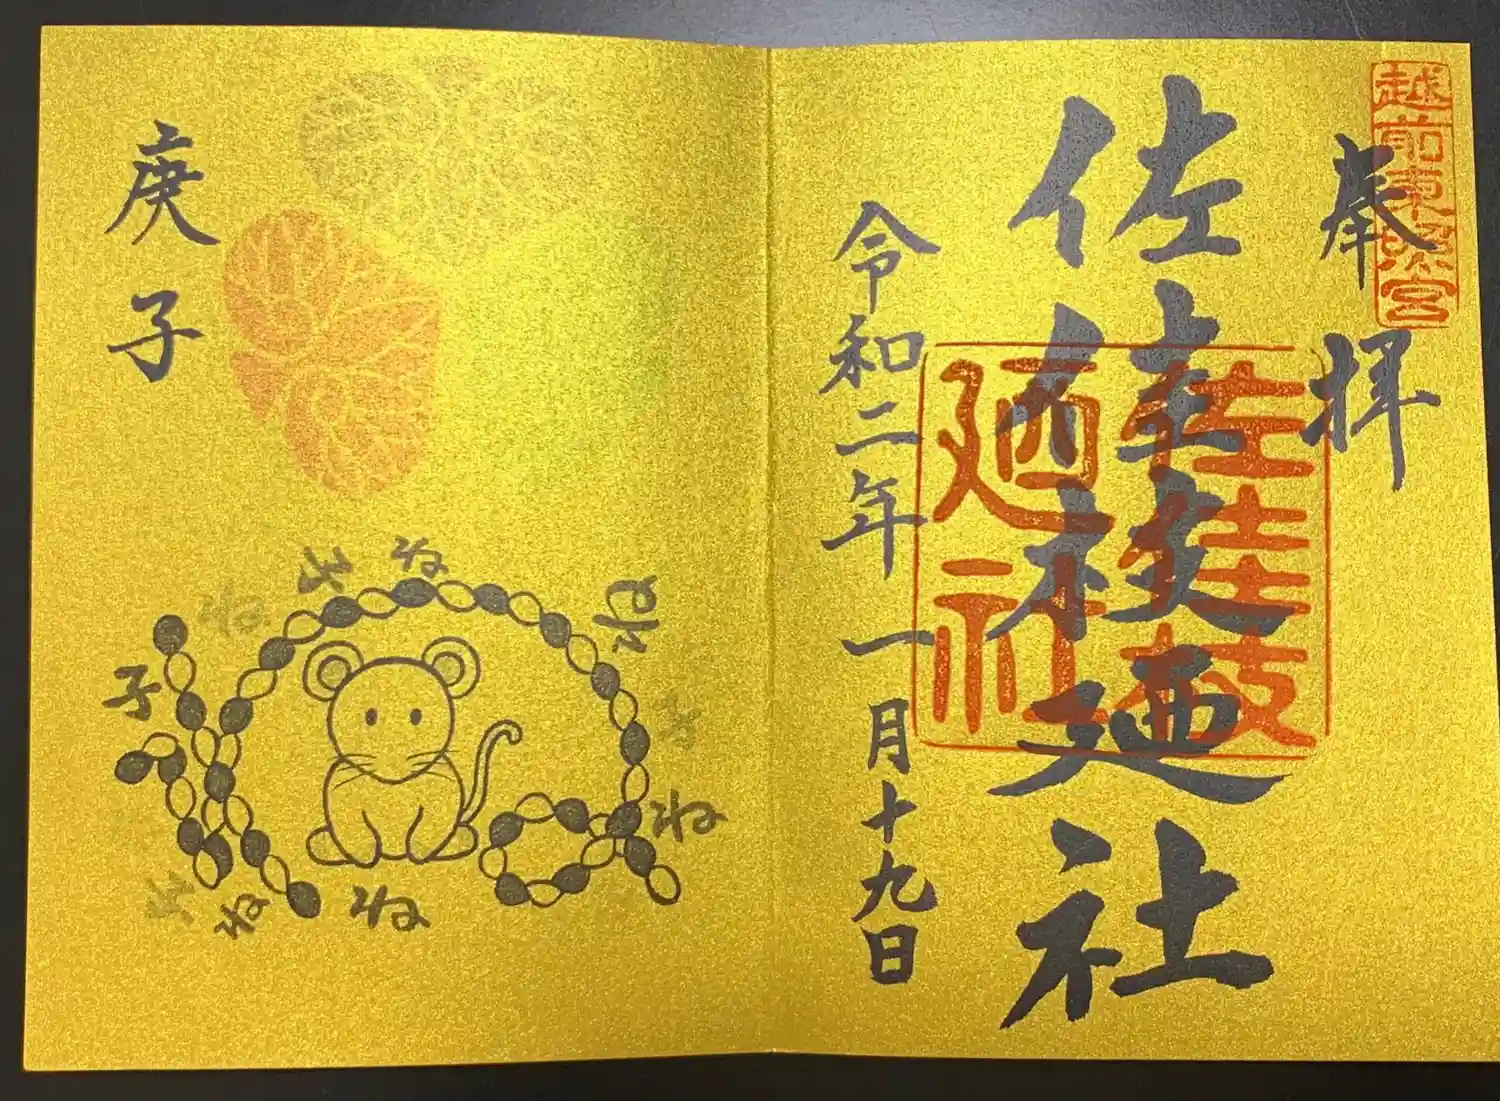 越前東照宮
奉拝
佐佳枝廼社
佐佳枝
廼社
令和二年一月十九日
庚子
子
ね
子
ね
ね
子
ね
ね
ね
子